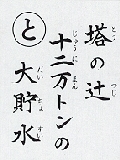 とう つじ
塔の辻
じゅうにまん
十二万トンの
たい ちょ すい
と 大貯水